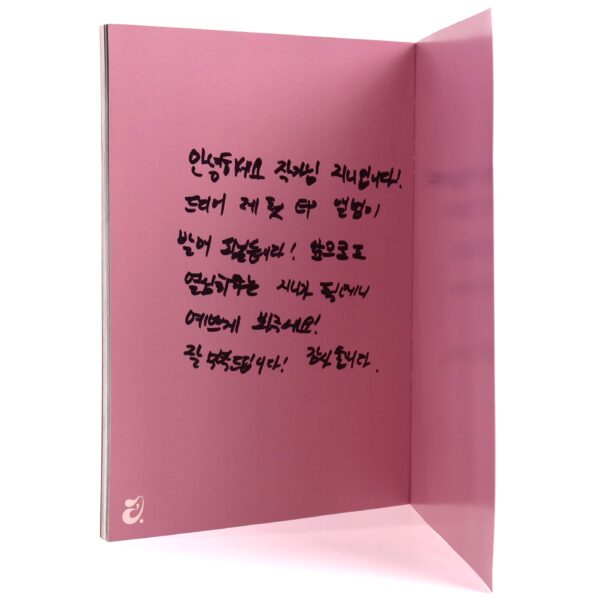 안녕하세요 작가님 지니입니다!
드디어 제 첫 앨범이
발매 되었습니다! 앞으로도
열심히하는 지니가 될테니
예쁘게 봐주세요!
잘 부탁드립니다! 감사합니다.